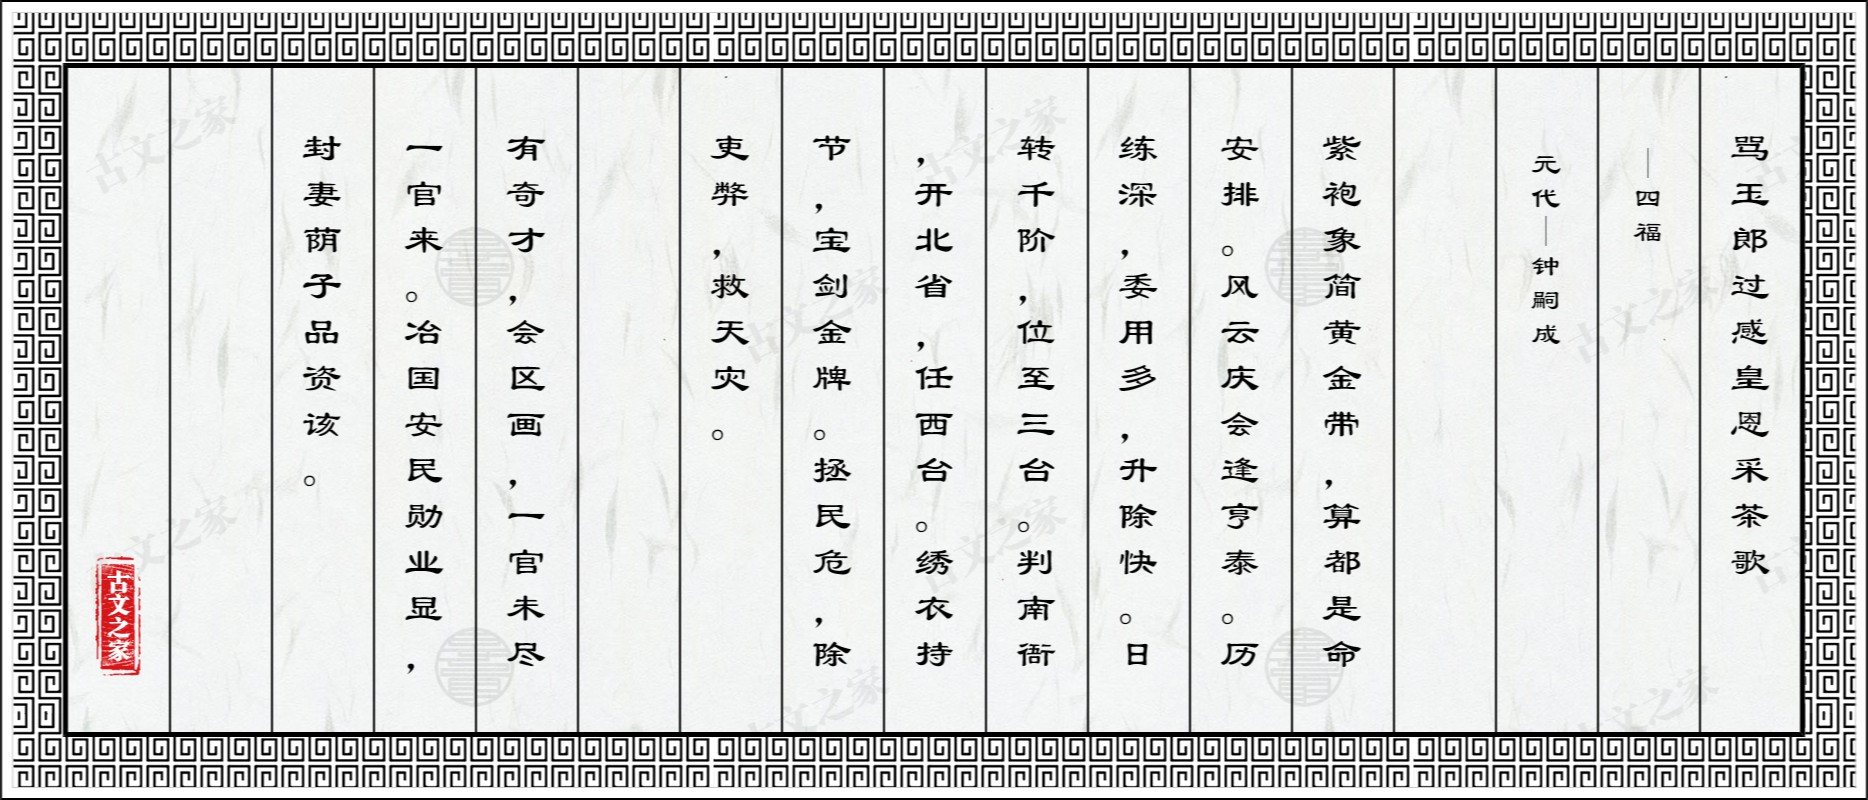 骂玉郎过感皇恩采茶歌
—四福
元代—钟嗣成
紫袍象简黄金带，算都是命
安排。风云庆会逢亨泰。历
练深，委用多，升除快。日
转千阶，位至三台。判南衙
，开北省，任西台。绣衣持
节，宝剑金牌。拯民危，除
吏弊，救天灾。
有奇才，会区画，一官未尽
一官来。冶国安民勋业显，
封妻荫子品资该。
古文之家